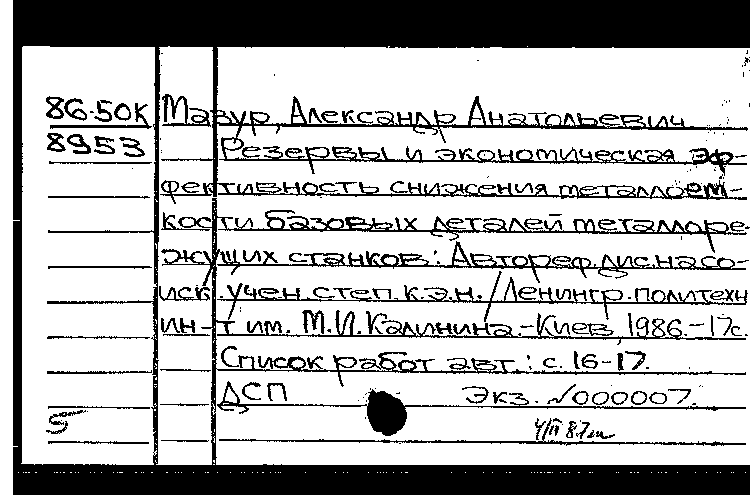 86-50К Мазур, Александр Анатольевич
8953 Резервы и экономическая эф-
фективность снижения металлоем-
кости базовых деталей металлоре-
жущих станков: Автореф.дис.на со-
иск.учен.степ.к.э.н./Ленингр.политехн
ин-т им. М.И.Калинина.-Киев, 1986.-17с.
Список работ авт.: с.16-17.
ДСП Экз. №000007.
5